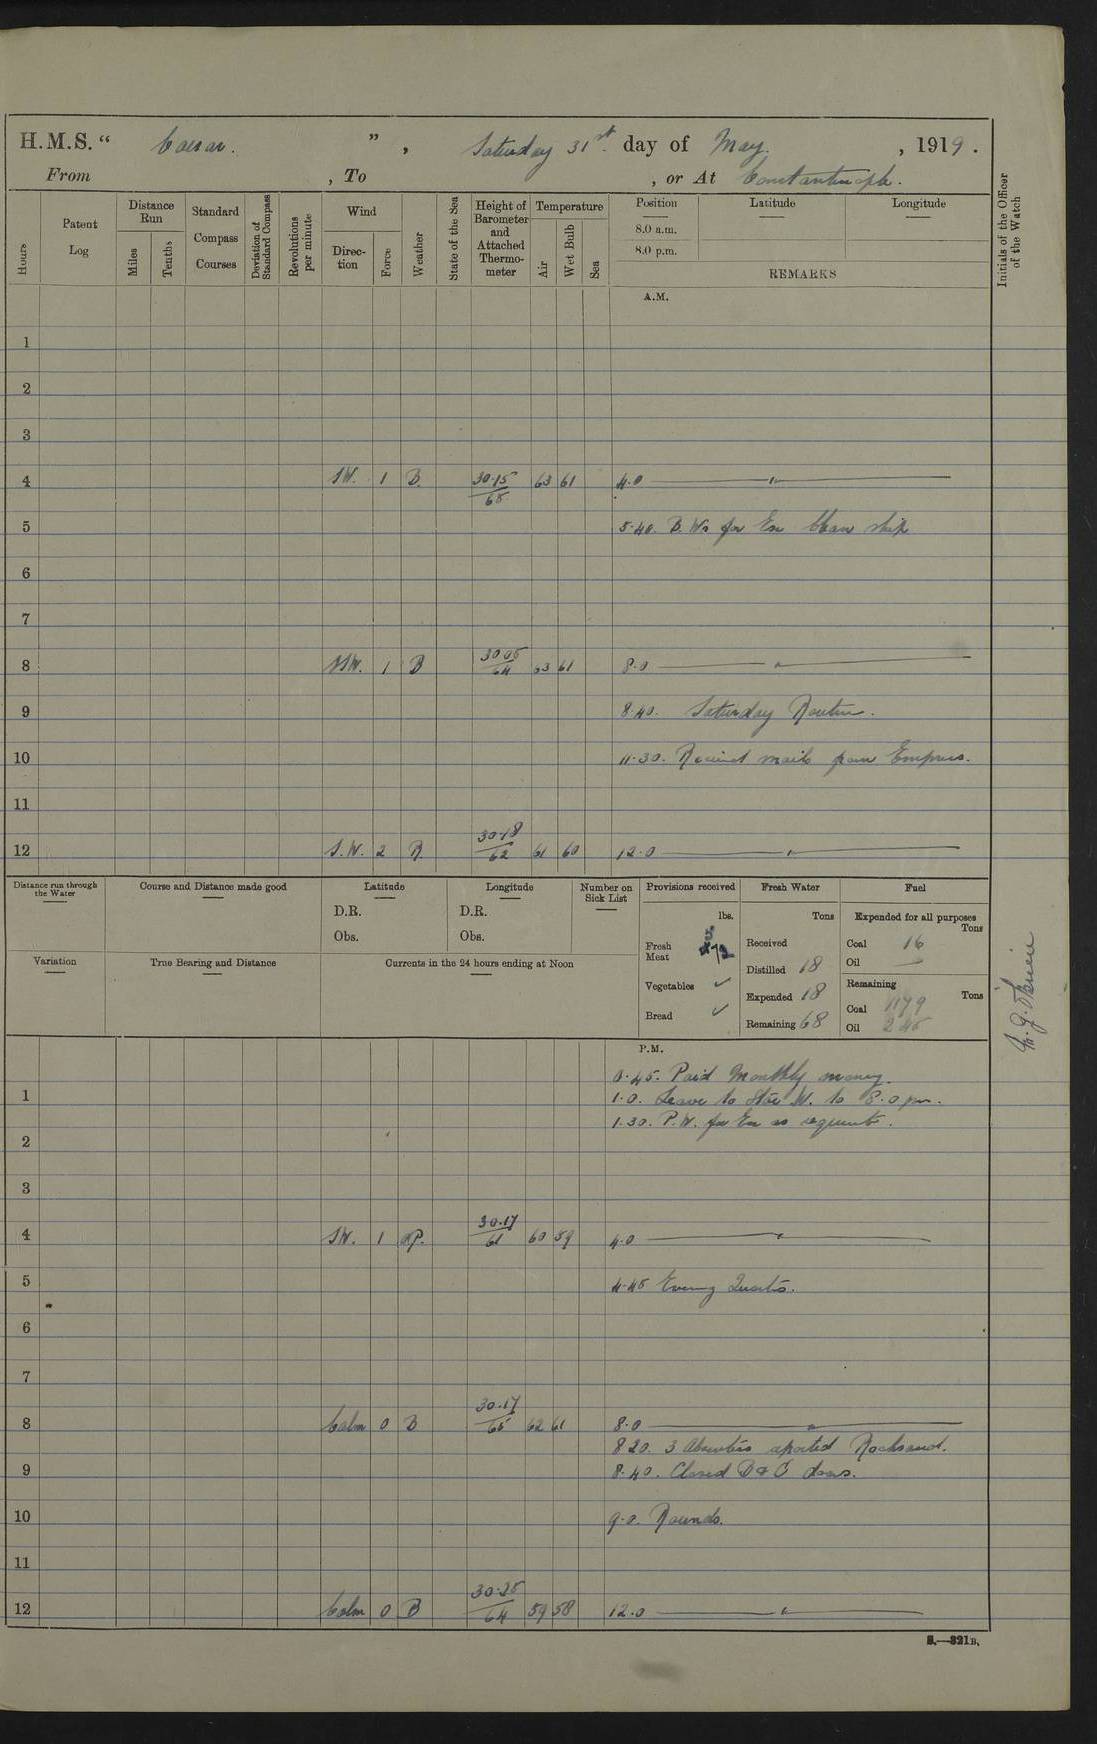 H.M.S. " Caesar. ", Saturday 31st. day of May. , 1919.
From , To , or At Constantinople.
Hours
Patent Log
Distance Run
Miles
Tenths
Standard Compass Courses
Deviation of Standard Compass
Revolutions per minute
Wind
Direction
Force
Weather
State of the Sea
Height of Barometer and Attached Thermometer
Temperature
Air
Wet Bulb
Sea
Position
8.0 a.m.
8.0 p.m.
Latitude
Longitude
REMARKS
Initials of the Officer of the Watch
A.M.
1
2
3
4 SW. 1 B. 30.15/65 63 61 4.0 — " —
5 5.40. for Em Clean ship
6
7
8 SSW. 1 B 30.05/64 63 61 8.0 — " —
9 8.40. Saturday Routine.
10 11.30. Received mails from Empress.
11
12 S.W. 2 R. 30.18/62 61 60 12.0 — " —
Distance run through the Water
Course and Distance made good
Latitude
D.R.
Obs.
Longitude
D.R.
Obs.
Number on Sick List
Provisions received
lbs.
Fresh Meat
Vegetables ✓
Bread ✓
Fresh Water
Tons
Received
Distilled 18
Expended 18
Remaining 68
Fuel
Expended for all purposes
Tons
Coal 16
Oil —
Remaining
Tons
Coal 1179
Oil 245
Variation
True Bearing and Distance
Currents in the 24 hours ending at Noon
P.M.
0.45. Paid Monthly money.
1 1.0. Leave to W. to 8.0 pm.
1.30. P.W. for Em as requisite.
2
3
4 SW. 1 30.17/61 60 59 4.0 — " —
5 4.45 Evening Quarters.
6
7
8 Calm 0 B 30.17/65 62 61 8.0 — " —
8.20. 3 Absentees reported
9 8.40. Closed doors.
10 9.0. Rounds.
11
12 Calm 0 B 30.25/64 59 58 12.0 — " —
S.—321B.